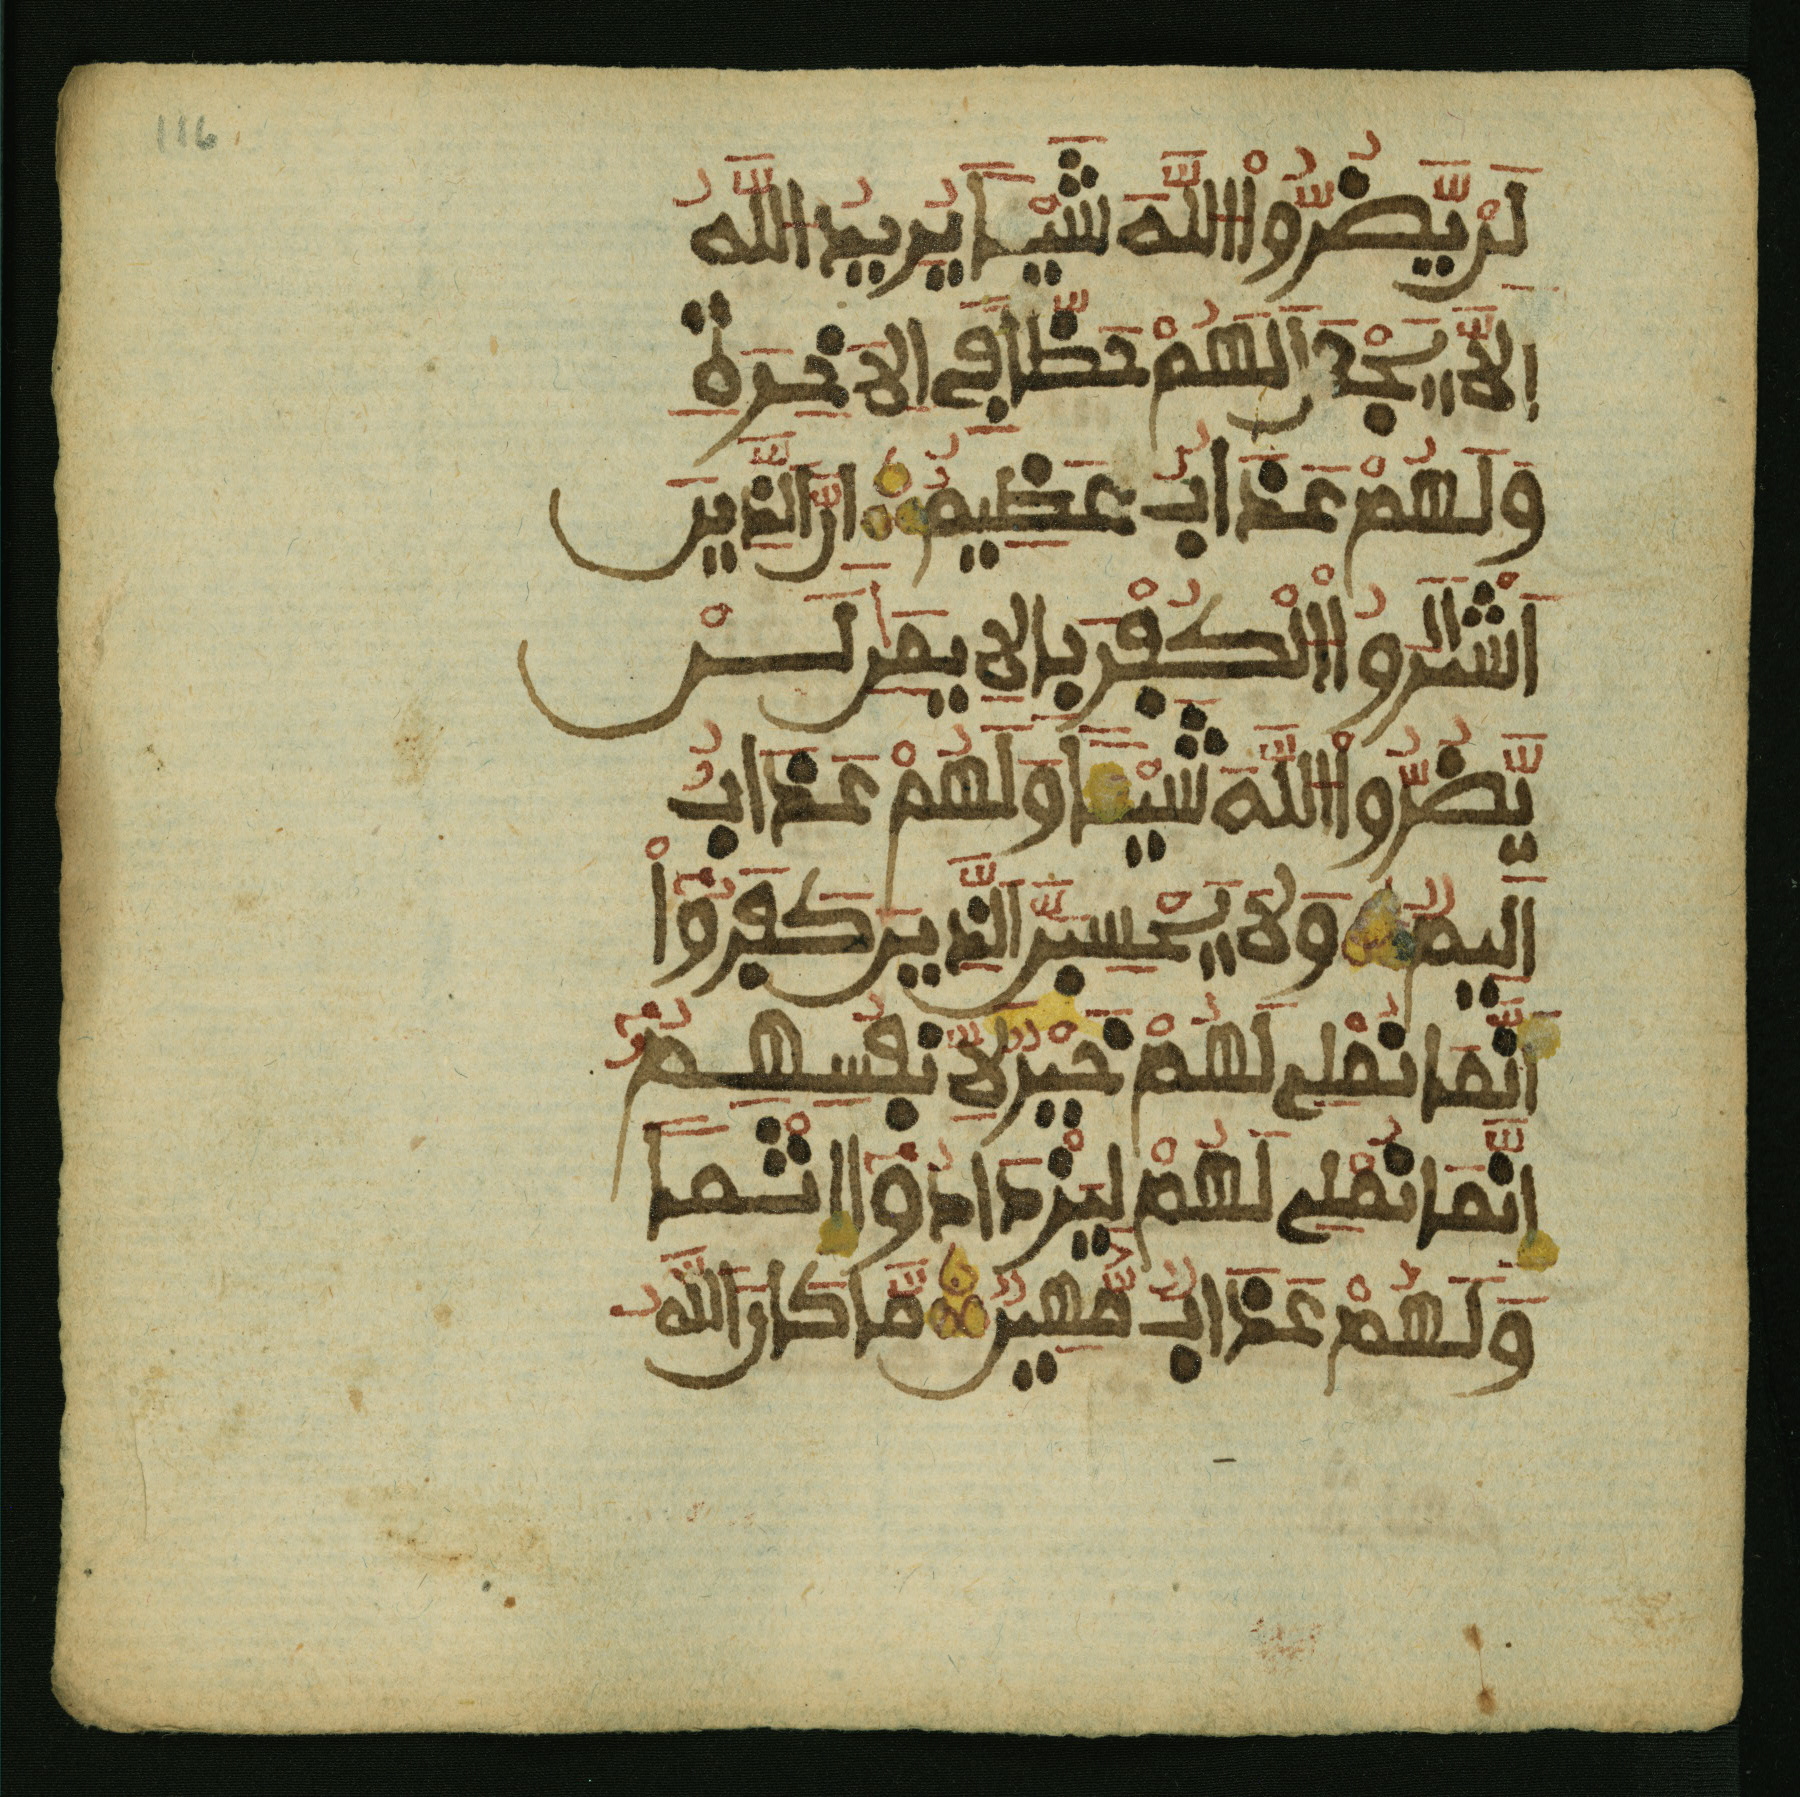 116
لَنْ يَّضُرُّواْ اللَّهَ شَيْـًٔا يُرِيدُ اللَّهُ
اَلَّا يَجْعَلَ لَهُمْ حَظًّا فِى الَاخِرَةِ
وَلَهُمْ عَذَابٌ عَظِيمٌ اِنَّ الَّذِينَ
اَشْتَرَوُاْ اُلْكُفْرَ بِالِايمَٰنِ لَنْ
يَّضُرُّواْ اللَّهَ شَيْـًٔا وَلَهُمْ عَذَابٌ
اَلِيمٌ وَلَا يَحْسِبَنَّ الَّذِينَ كَفَرُواْ
أَنَّمَا نُمْلِى لَهُمْ خَيْرٌ لِّأَنفُسِهِمُۥٓ
إِنَّمَا نُمْلِى لَهُمْ لِيَزْدَادُوٓاْ إِثْمًا
وَلَهُمْ عَذَابٌ مُّهِينٌ مَّا كَانَ اللَّهُ